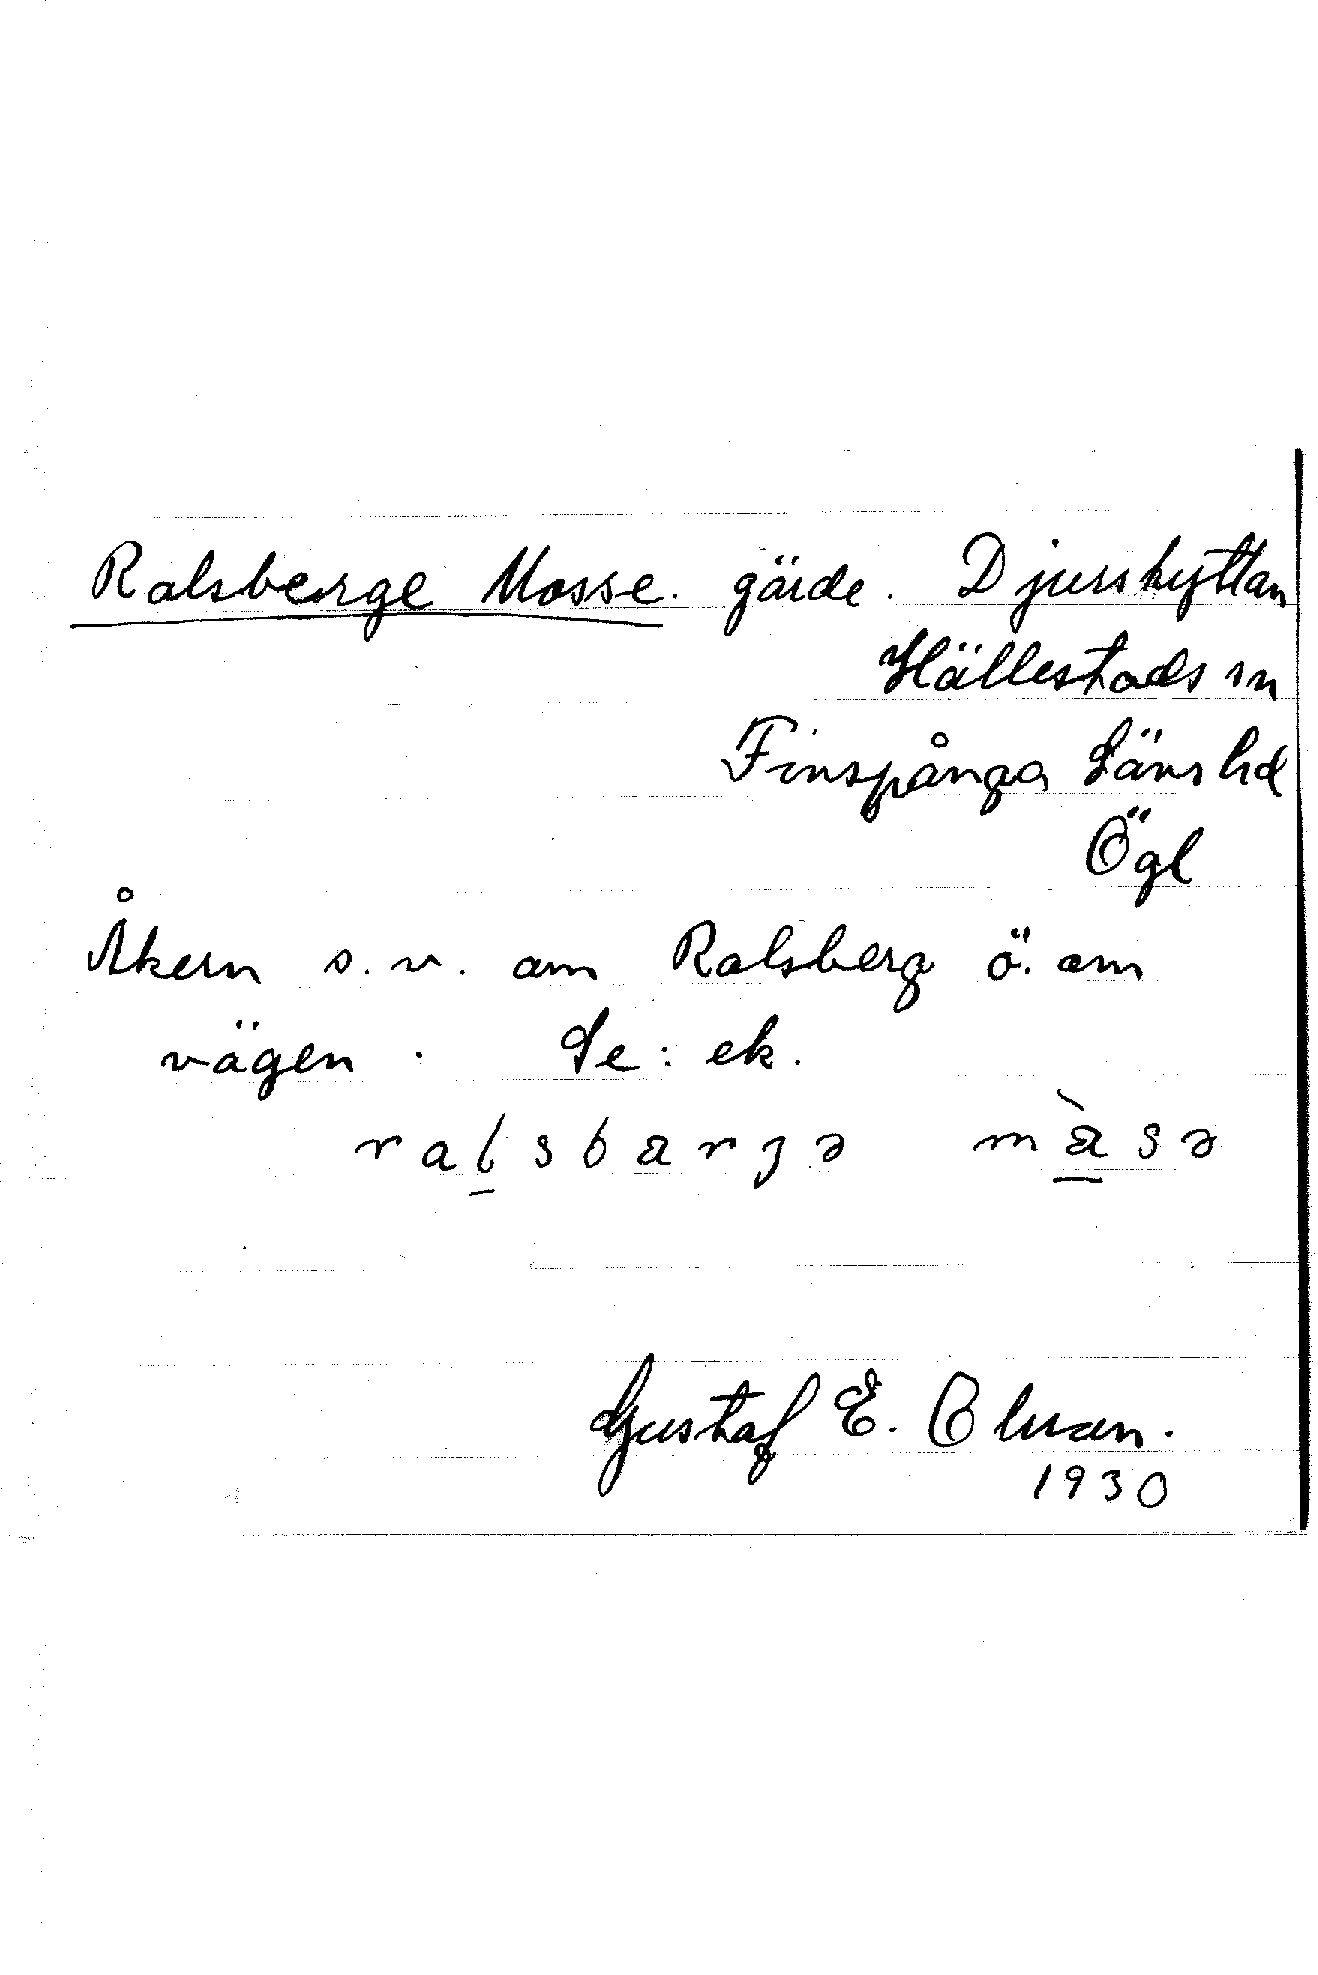 Ralsberge Mosse. gärde. Djurshyttan
Hällestads sn
Finspånga Läns hd
Ögl
Åkern s.v. om Ralsberg ö. om
vägen. Se: ek.
Gustaf E. Clvan.
1930